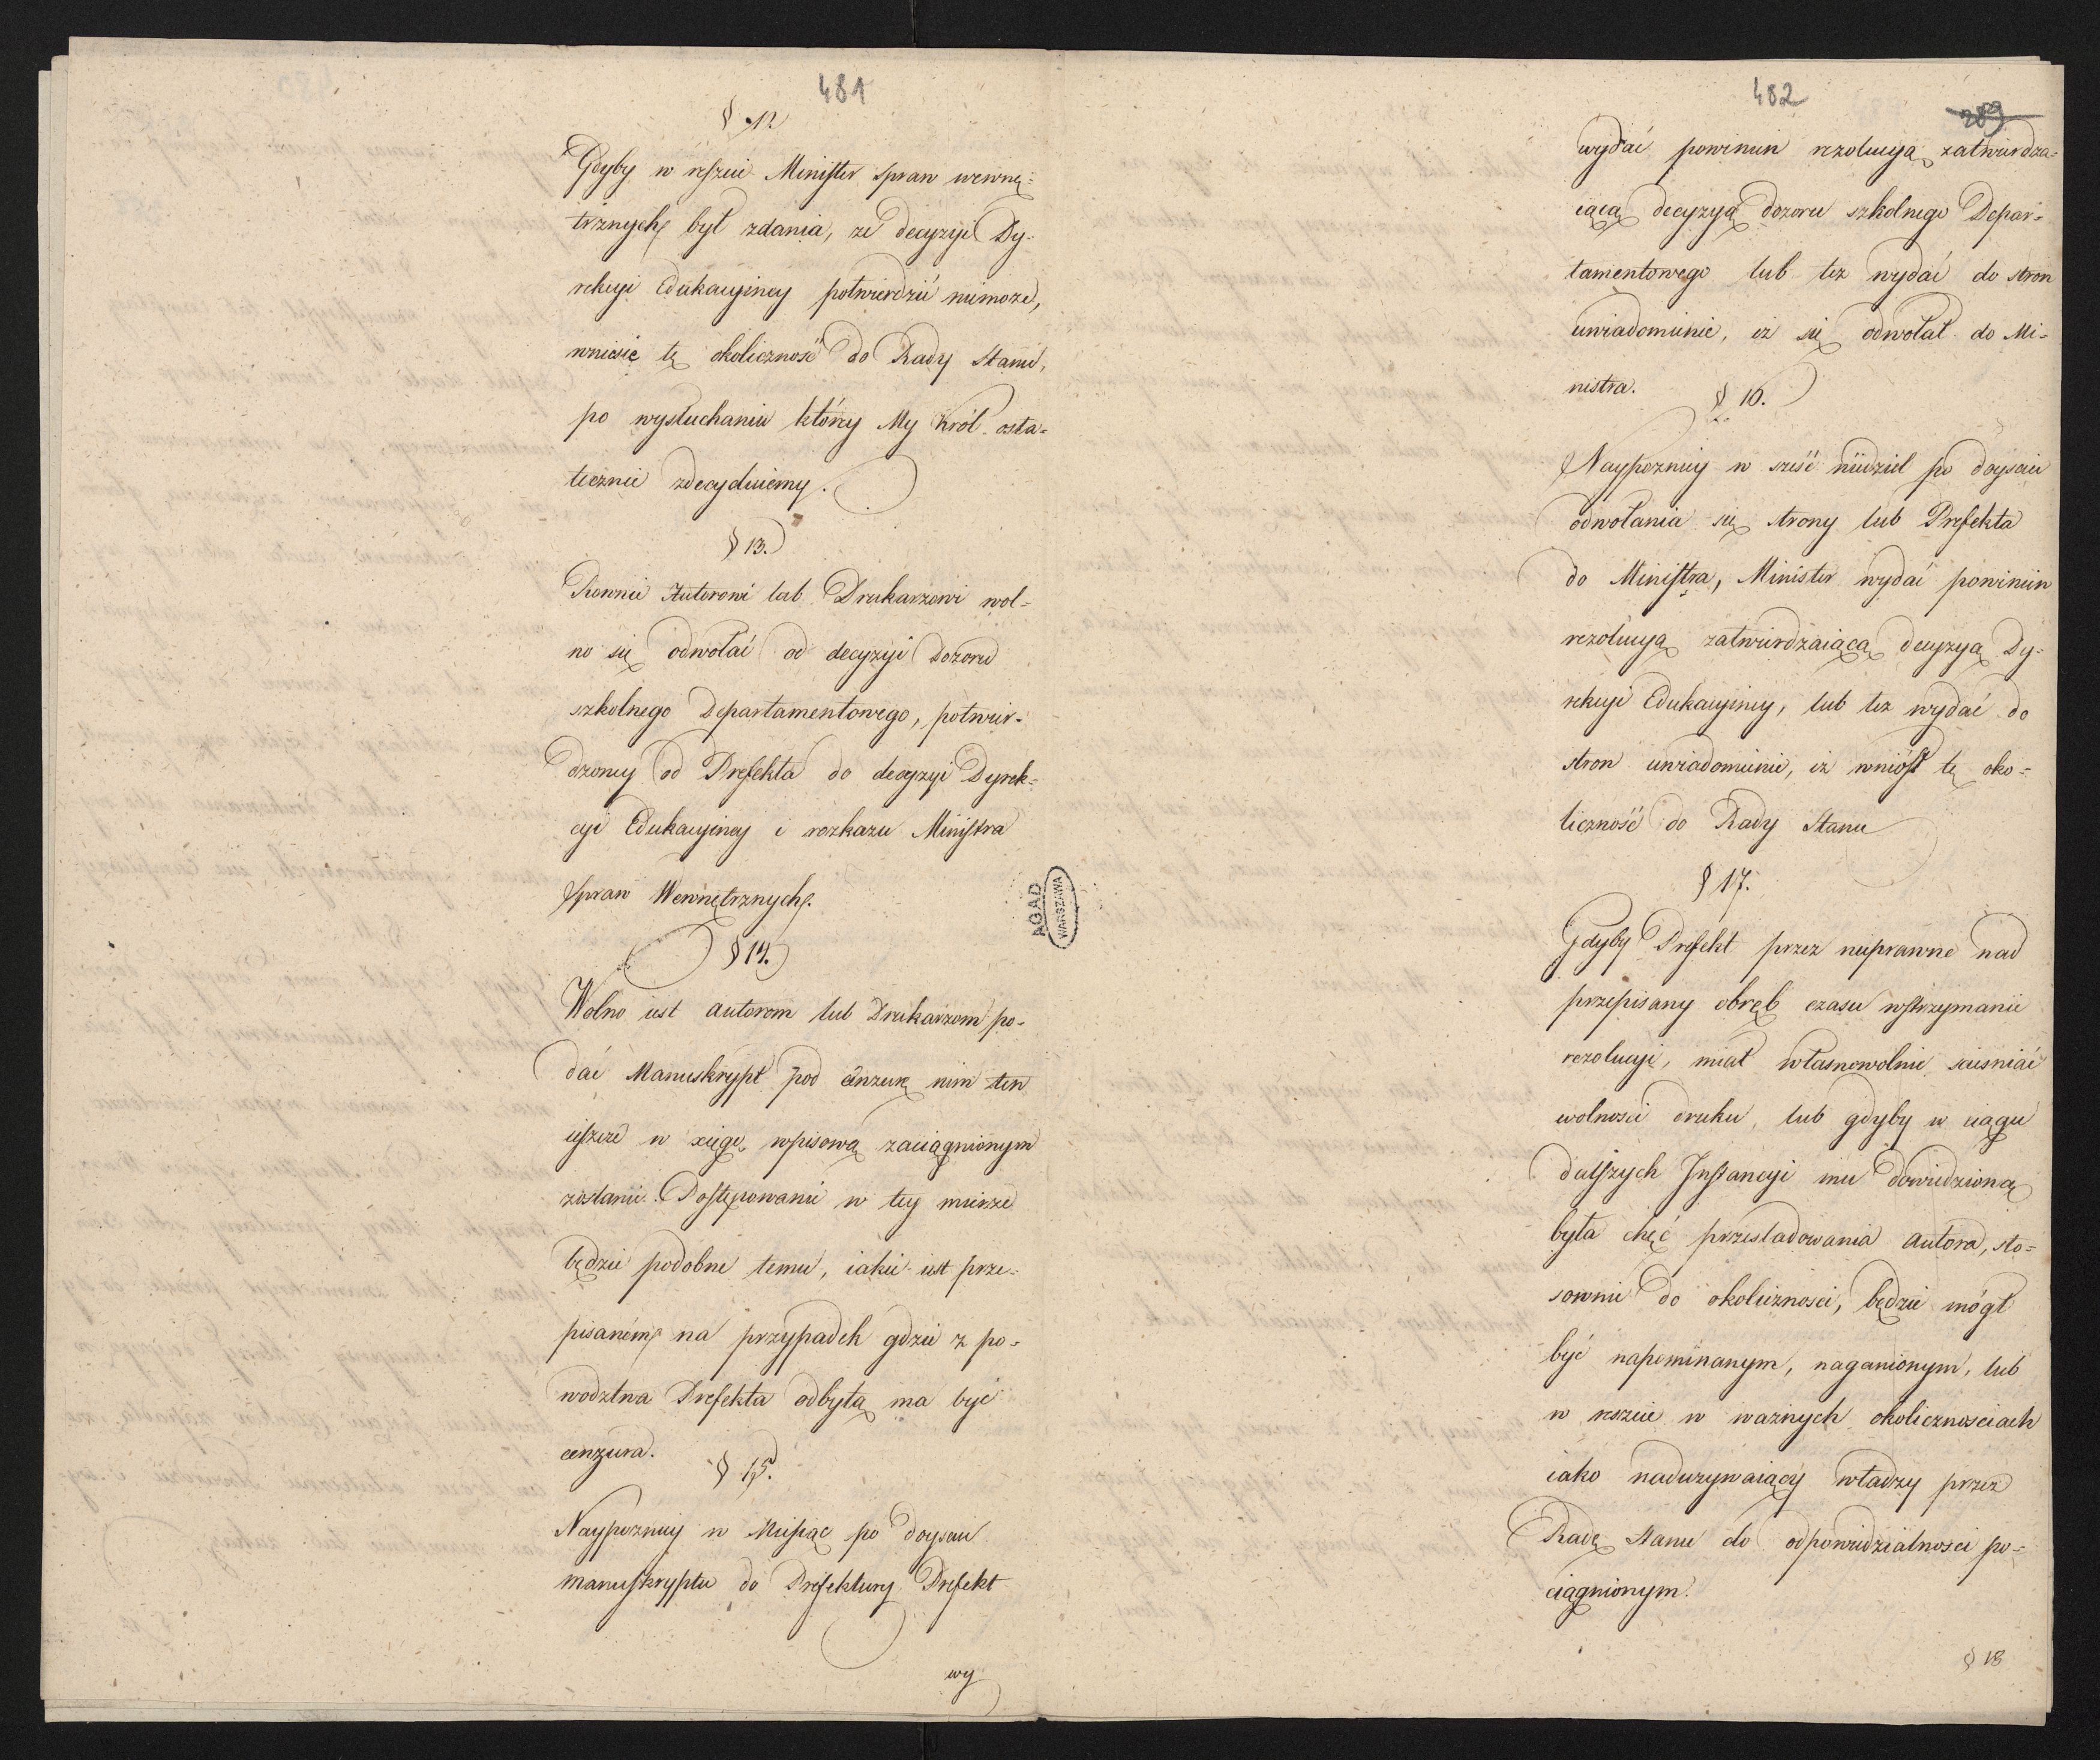 481
§ 12
Gdyby w reszcie Minister spraw wewnę=
trznych był zdania, że decyzyi Dy-
rekcyi Edukacyiney potwierdzić niemoże,
wniesie tę okoliczność do Rady Stanu,
po wysłuchaniu którey My Król osta=
tecznie zdecyduiemy.
§ 13.
Rownie Autorowi lub Drukarzowi wol=
no się odwołać od decyzyi Dozoru
szkolnego Departamentowego, potwier=
dzoney od Prefekta do decyzyi Dyrek=
cyi Edukacyiney i rozkazu Ministra
Spraw Wewnętrznych.
§ 14.
Wolno iest autorom lub Drukarzom po-
dać Manuskrypt pod cenzurę nim ten
ieszcze w xięgę wpisową zaciągnionym
zostanie. Postępowanie w tey mierze
będzie podobne temu, iakie iest prze=
pisaném na przypadek gdzie z po=
wodztwa Prefekta odbytą ma być
cenzura.
§ 15.
Naypozniey w Miesiąc po doyściu
manuskryptu do Prefektury Prefekt
wy
AGAD
WARSZAWA
482
289
wydać powinien rezolucyą zatwierdza=
iącą decyzyą dozoru szkolnego Depar=
tamentowego lub tez wydać do stron
uwiadomienie, iż się odwołał do Mi=
nistra.
§ 16.
Naypozniey w sześć niedziel po doyściu
odwołania się strony lub Prefekta
do Ministra, Minister wydać powinien
rezolucyą zatwierdzaiącą decyzyą Dy-
rekcyi Edukacyiney, lub tez wydać do
stron uwiadomienie, iz wniósł tę oko=
liczność do Rady Stanu
§ 17.
Gdyby Prefekt przez nieprawne nad
przepisany obręb czasu wstrzymanie
rezolucyi, miał własnowolnie scieśniać
wolności druku, lub gdyby w ciągu
dalszych Instancyi mu dowiedzioną
była chęć prześladowania autora, sto=
sownie do okoliczności, będzie mógł
być napominanym, naganionym, lub
w reszcie w ważnych okolicznościach
iako nadużywaiący władzy przez
Radę Stanu do odpowiedzialności po=
ciągnionym.
§ 18